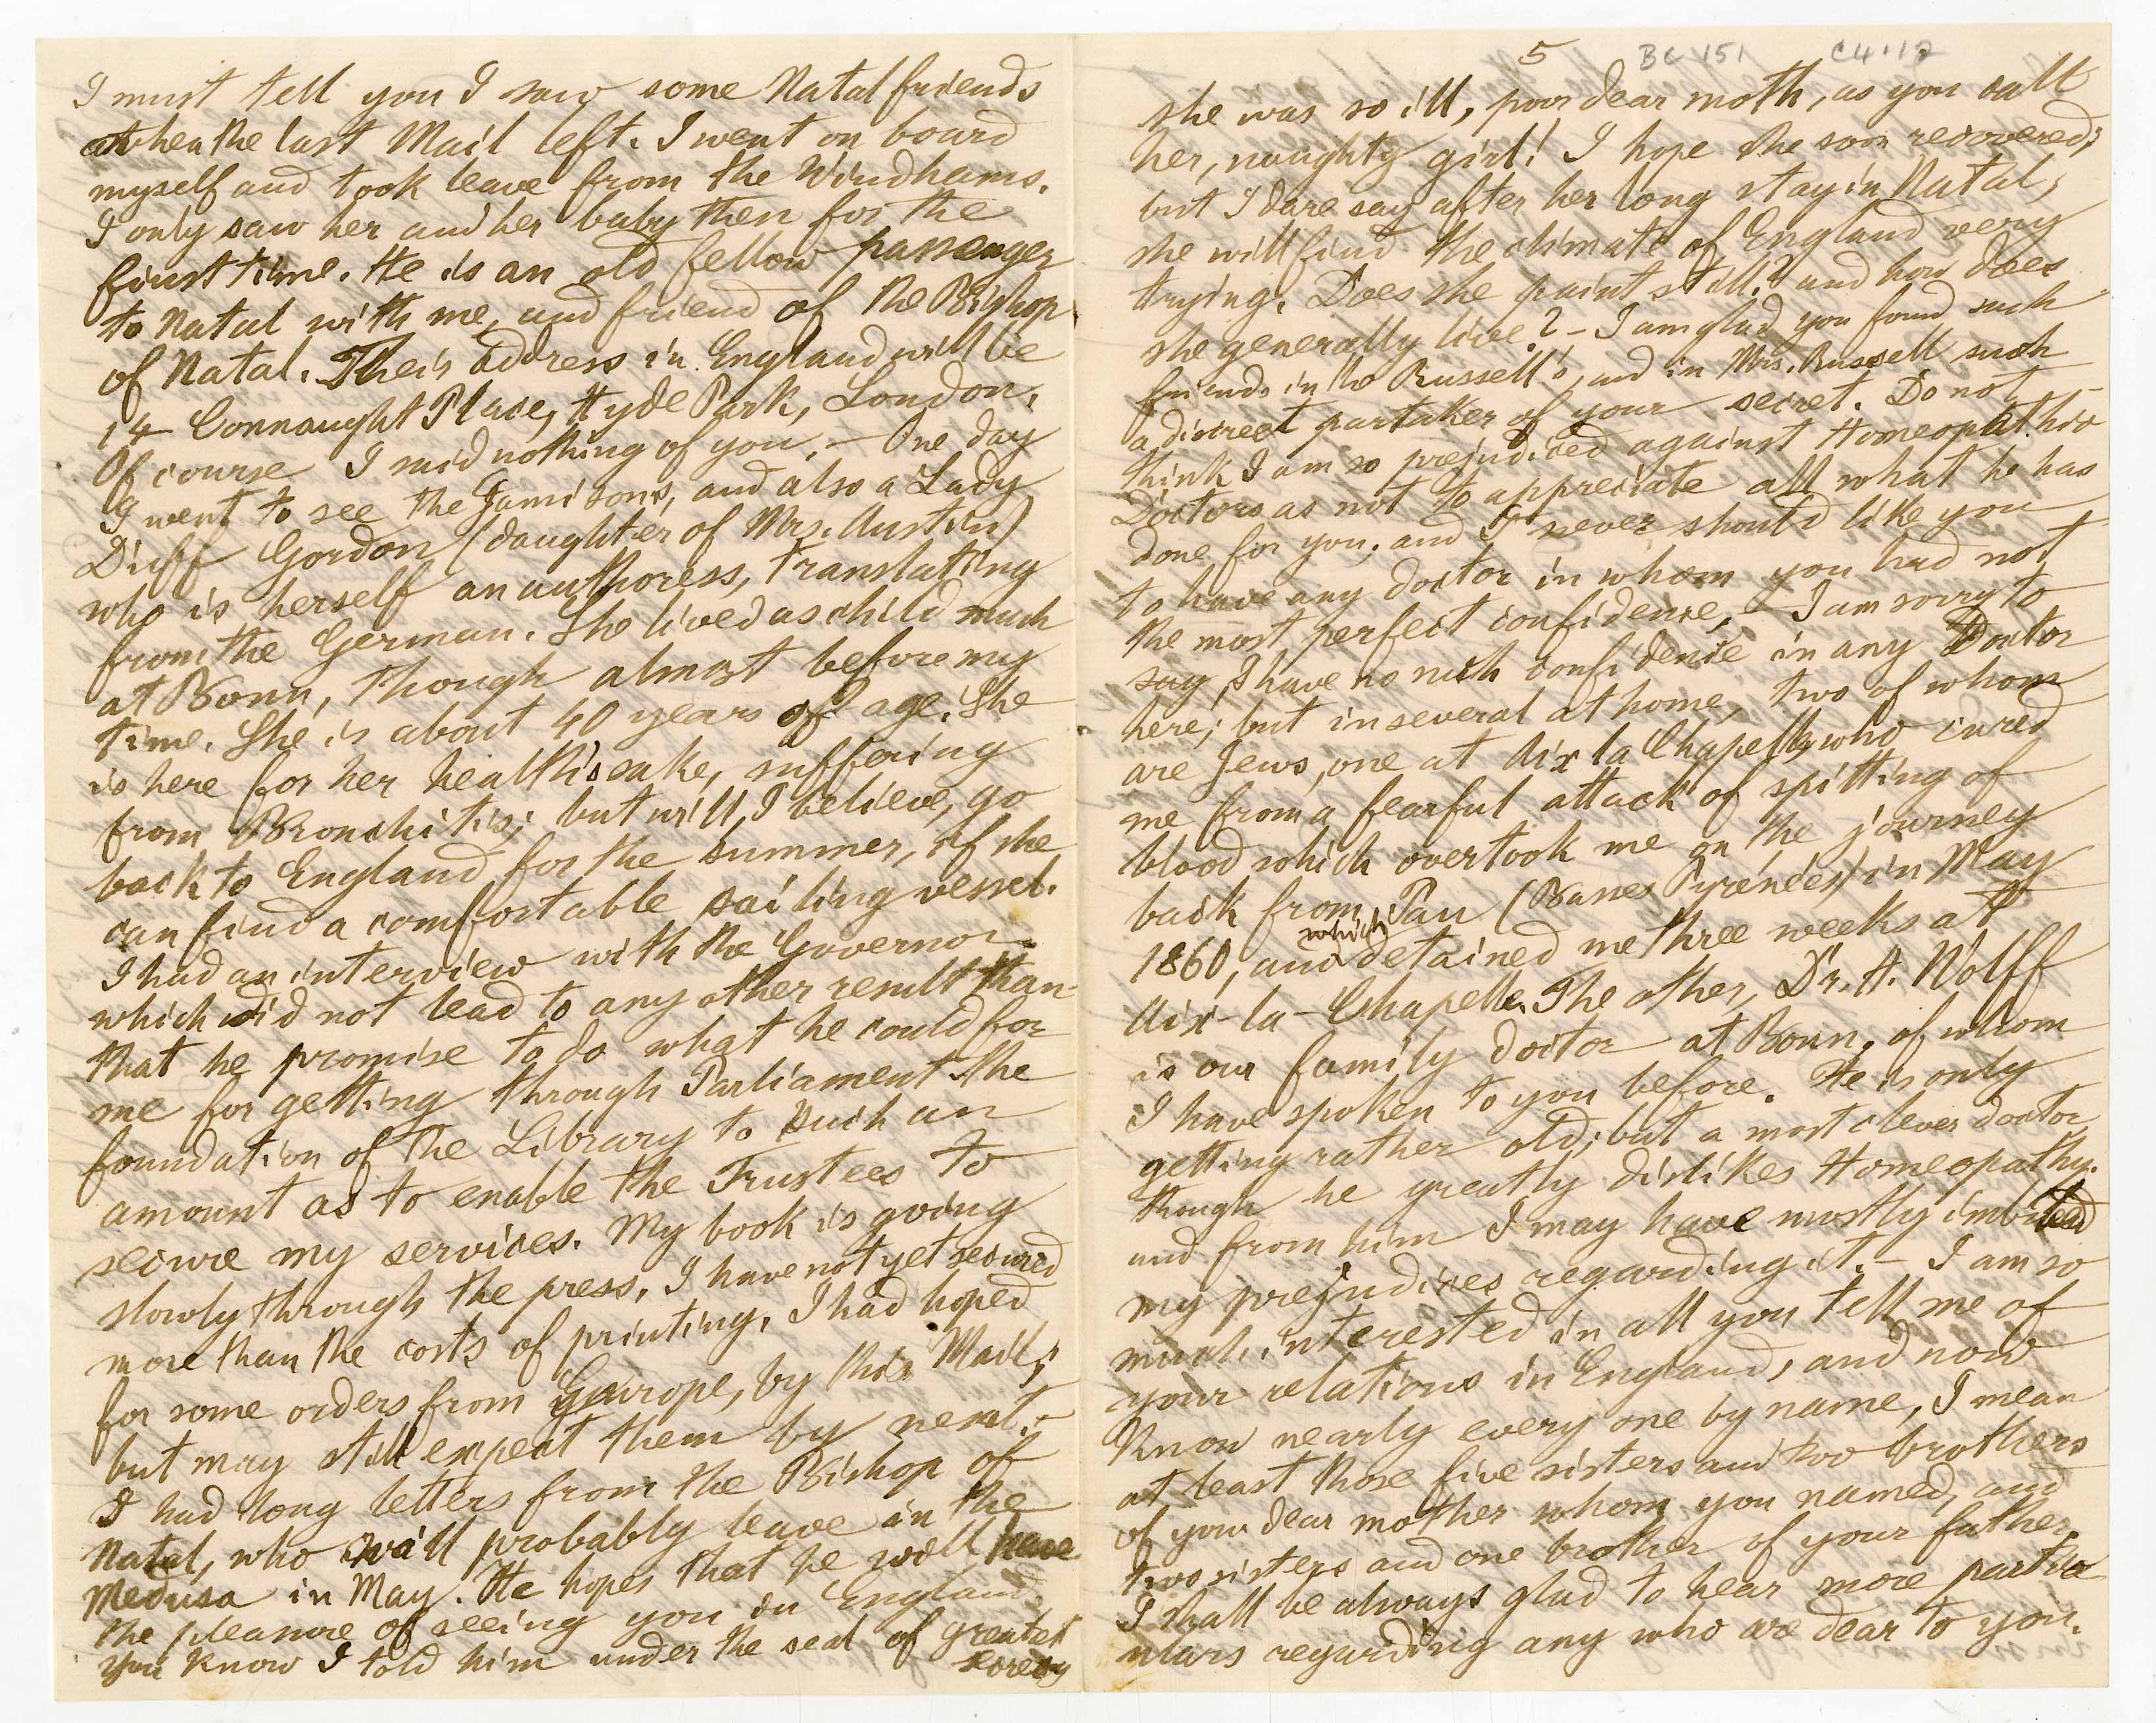 I must tell you I saw some Natal friends
when the last Mail left. I went on board
myself and took leave from the Windhams.
I only saw her and her baby then for the
first time. He is an old fellow passenger
to Natal with me, and friend of the Bishop
of Natal. Their address in England will be
14 Connaught Place, Hyde Park, London.
Of course I said nothing of you. — One day
I went to see the Jamisons, and also a Lady
Duff Gordon (daughter of Mrs. Austin)
who is herself an authoress, translating
from the German. She lived as child much
at Bonn, though almost before my
time. She is about 40 years of age. She
is here for her health's sake, suffering
from Bronchitis; but will, I believe, go
back to England for the summer, if she
can find a comfortable sailing vessel.
I had an interview with the Governor
which did not lead to any other result than
that he promise to do what he could for
me for getting through Parliament the
foundation of the Library to such an
amount as to enable the Trustees to
secure my services. My book is going
slowly through the press. I have not yet secured
more than the costs of printing. I had hoped
for some orders from Europe, by this Mail;
but may still expect them by next. —
I had long letters from the Bishop of
Natal, who will probably leave in the
Medusa in May. He hopes that he will have
the pleasure of seeing you in England.
You know I told him under the seal of greatest
secrecy
5 BC 151 C4.12
she was so ill, poor dear moth, as you call
her, naughty girl! I hope she soon recovered;
but I dare say after her long stay in Natal,
she will find the climate of England very
trying. Does she paint still? and how does
she generally live? — I am glad you found such
friends in the Russell's, and in Mrs. Russell such
a discreet partaker of your secret. Do not
think I am so prejudiced against Homeopathic
Doctors as not to appreciate all what he has
done for you, and I never should like you
to have any doctor in whom you had not
the most perfect confidence. — I am sorry to
say, I have no such confidence in any Doctor
here; but in several at home, two of whom
are Jews, one at Aix la Chapelle, who cured
me from a fearful attack of spitting of
blood which overtook me on the journey
back from Pau (Basses Pyrénées) in May
1860, and which detained me three weeks at
Aix-la-Chapelle. The other, Dr. H. Wolff
is our family doctor at Bonn, of whom
I have spoken to you before. He is only
getting rather old; but a most clever doctor,
though he greatly dislikes Homeopathy,
and from him I may have mostly imbibed
my prejudices regarding it. — I am so
much interested in all you tell me of
your relations in England, and now
know nearly every one by name, I mean
at least those five sisters and two brothers
of your dear mother whom you named, and
two sisters and one brother of your father.
I shall be always glad to hear more particu
lars regarding any who are dear to you.